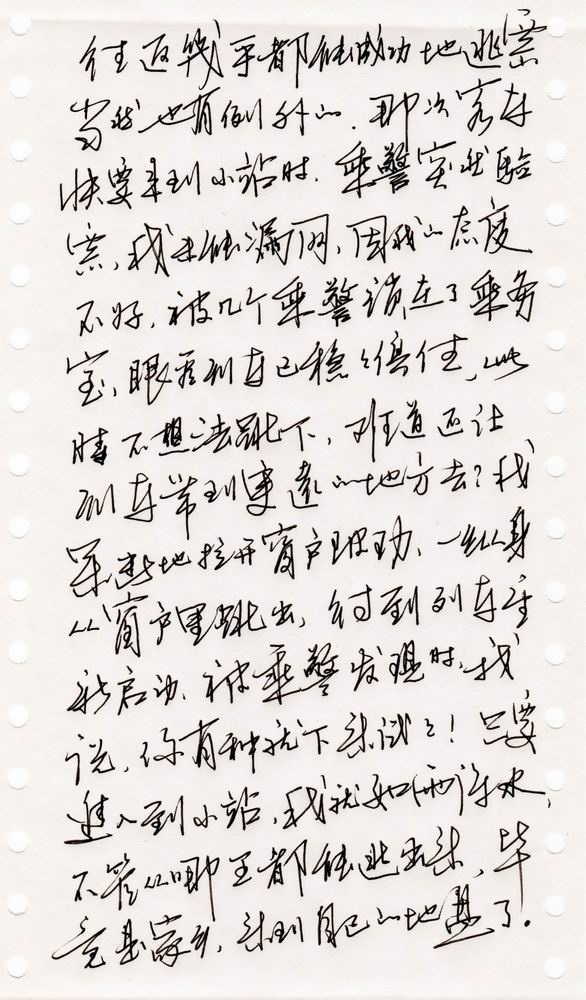 往返几乎都能成功地逃票
当然也有例外的.那次客车
快要来到小站时.乘警突然验
票,我未能漏网,因我的态度
不好,被几个乘警锁在了乘务
室,眼看列车已稳稳停住,此
时不想法跳下,难道还让
列车带到更远的地方去?我
果断地拉开窗户玻璃,一纵身
从窗户里跳出,待到列车重
新启动,被乘警发现时,我
说,你有种就下来试试!只要
进入到小站,我就如鱼得水,
不管从哪里都能逃出来,毕
竟是家乡,来到自己的地盘了.